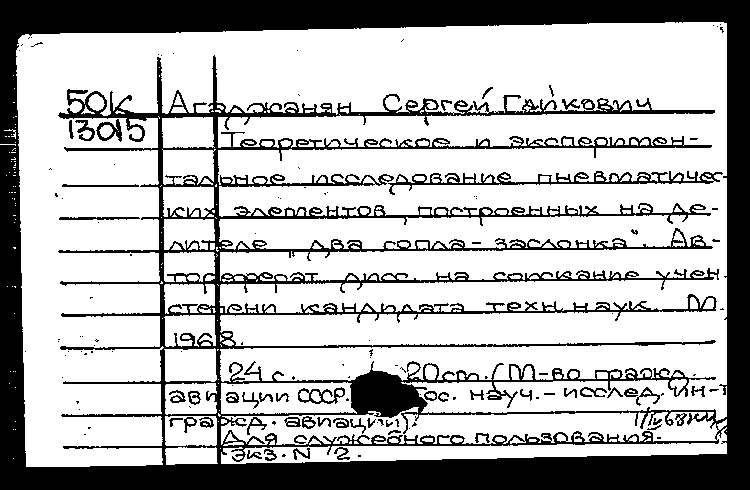 50К Агаджанян, Сергей Гайкович
13015
Теоретическое и эксперимен-
тальное исследование пневматичес-
ких элементов, построенных на де-
лителе „два сопла-заслонка". Ав-
тореферат дисс. на соискание учен.
степени кандидата техн. наук. М.
1968.
24 с. 20 cm. (М-во гражд.
авиации СССР. Гос. науч.-исслед. ин-т
гражд. авиации).
Для служебного пользования.
Экз. N 2.